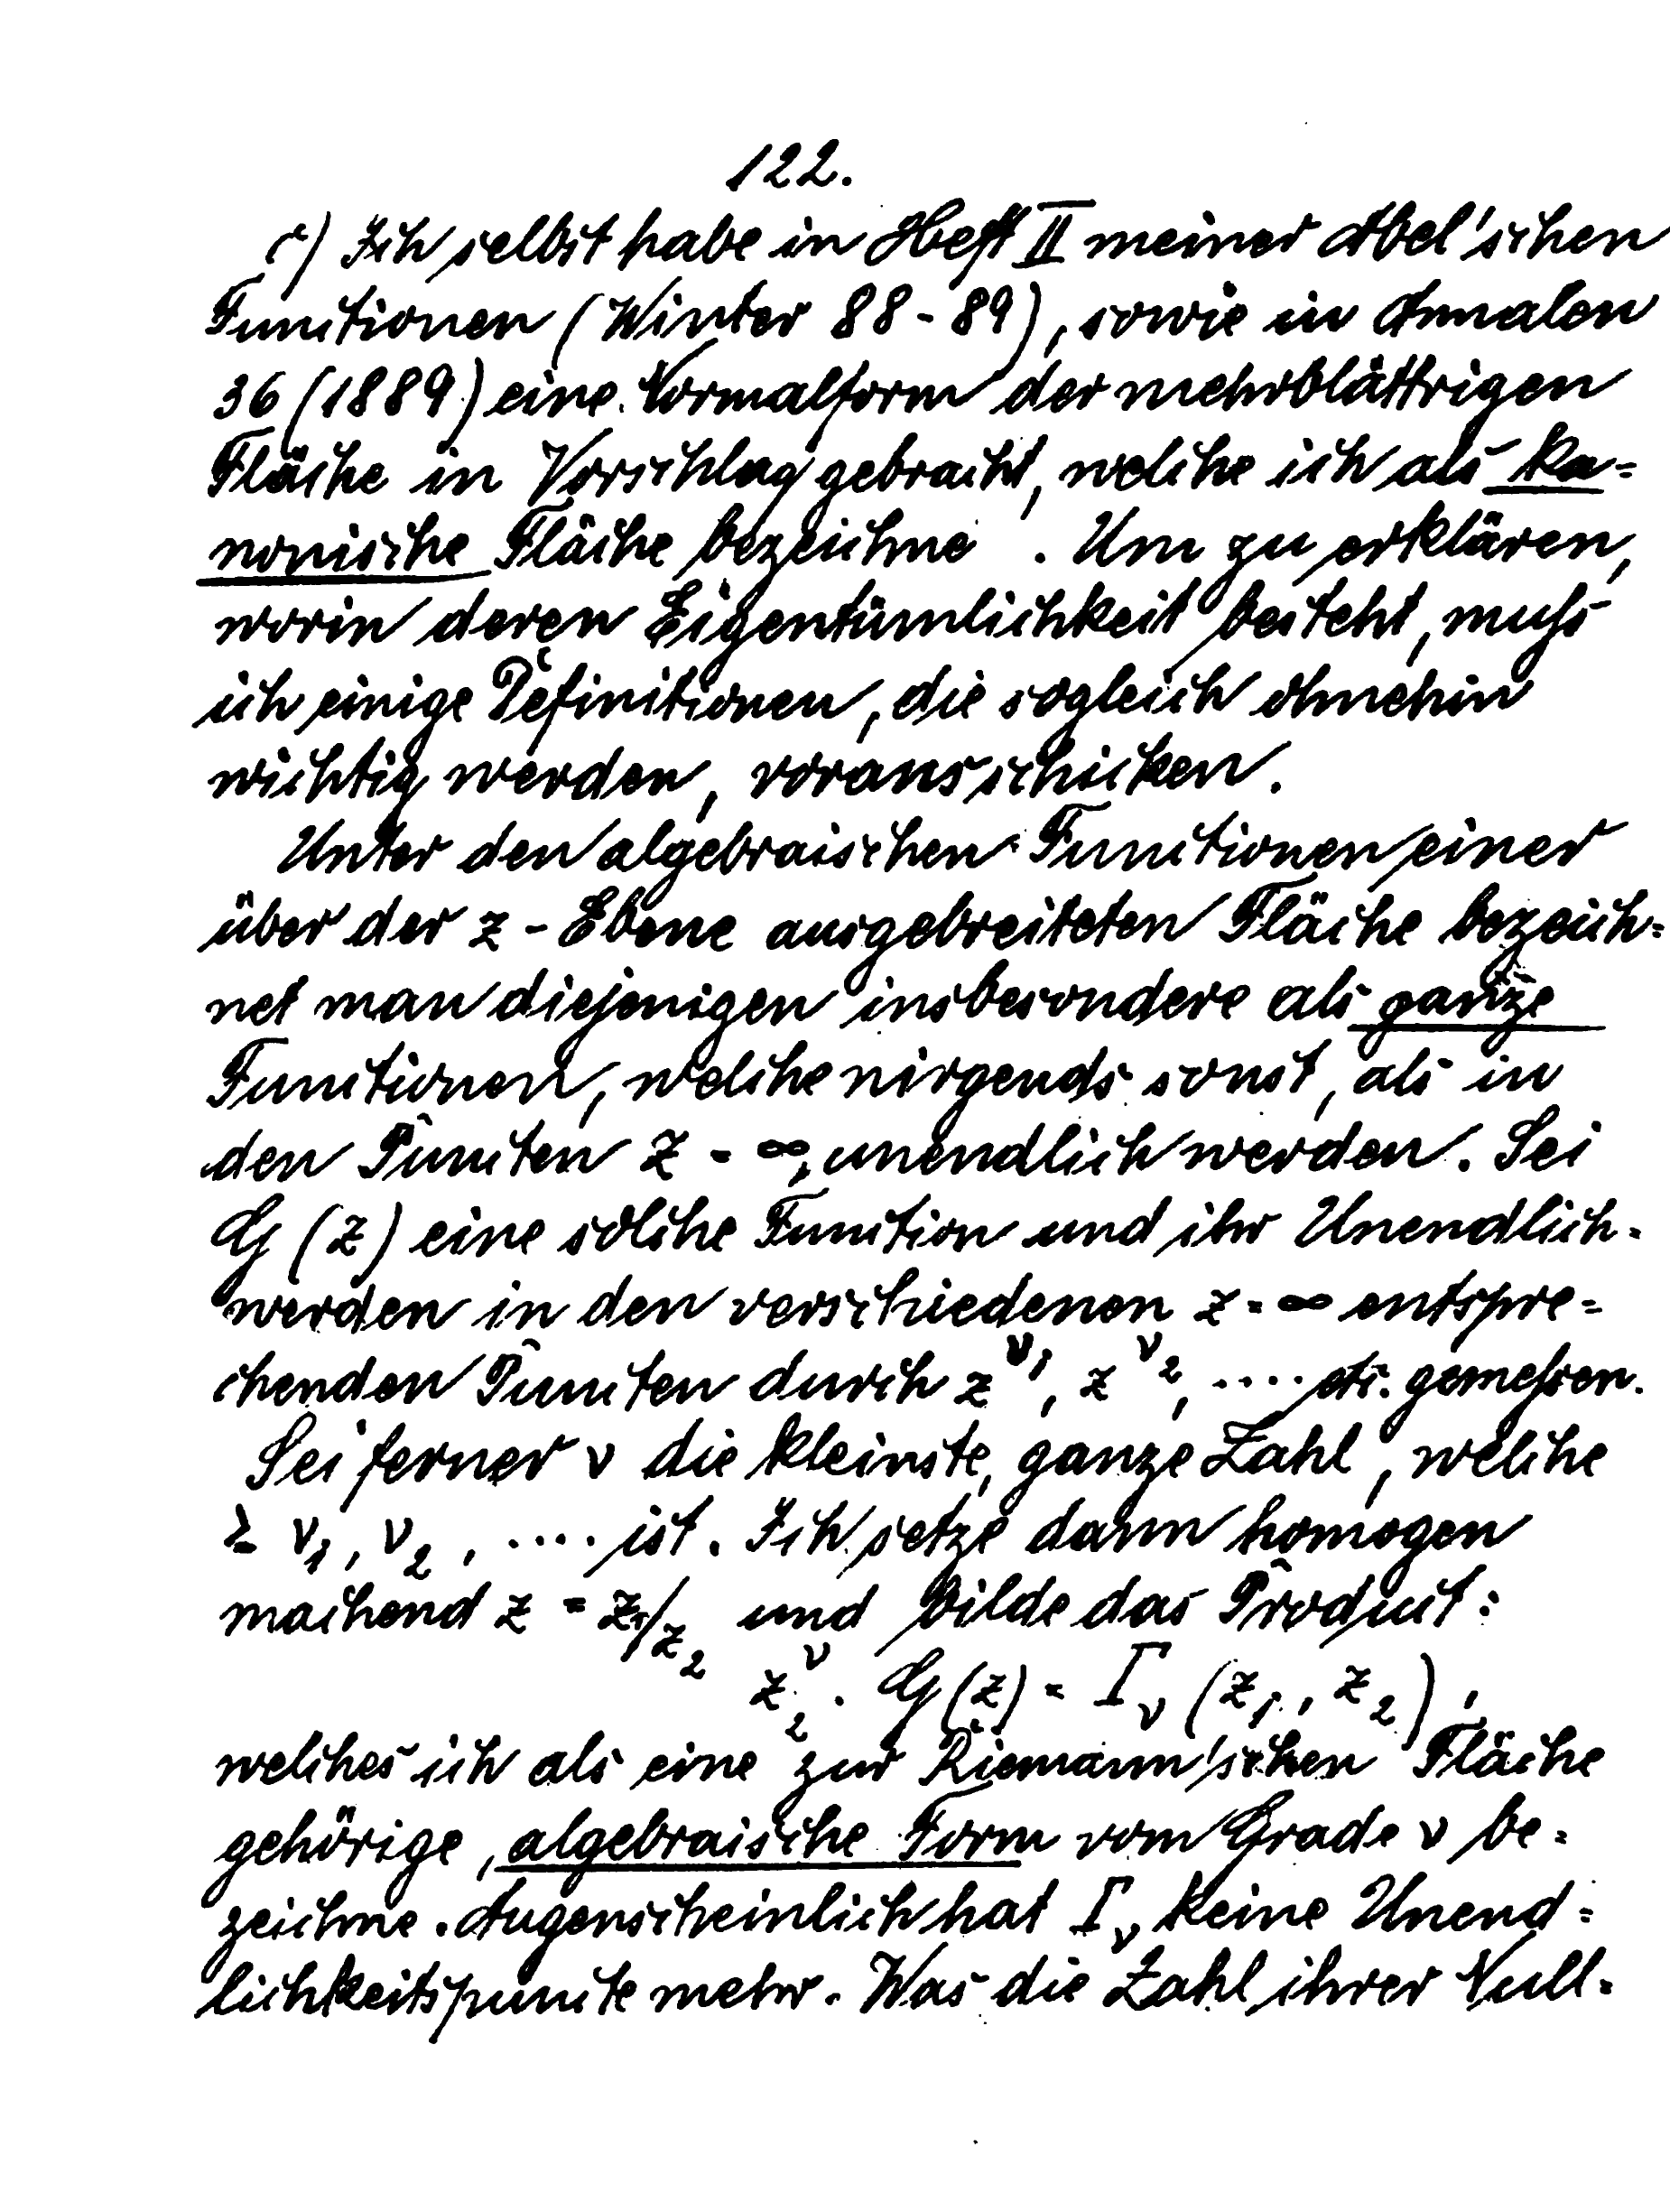 122.
c) Ich selbst habe in Heft II meiner Abel'schen
Functionen (Winter 88-89), sowie in Annalen
36 (1889) eine Normalform der mehrblättrigen
Fläche in Vorschlag gebracht, welche ich als ka-
nonische Fläche bezeichne. Um zu erklären,
worin deren Eigentümlichkeit besteht, muß
ich einige Definitionen, die sogleich ohnehin
wichtig werden, vorausschicken.
Unter den algebraischen Functionen einer
über der z-Ebene ausgebreiteten Fläche bezeich-
net man diejenigen insbesondere als ganze
Functionen, welche nirgends sonst, als in
den Puncten z = ∞, unendlich werden. Sei
G (z) eine solche Function und ihr Unendlich-
werden in den verschiedenen z = ∞ entspre-
chenden Puncten durch z^ν₁, z^ν₂, .... etc. gemeßen.
Sei ferner ν die kleinste, ganze Zahl, welche
≥ ν₁, ν₂, .... ist. Ich setze dann homogen
machend z = z₁/z₂ und bilde das Product:
z₂^ν . G (z) = Γ_ν (z₁, z₂),
welches ich als eine zur Riemann'schen Fläche
gehörige, algebraische Form vom Grade ν be-
zeichne. Augenscheinlich hat Γ_ν keine Unend-
lichkeitspuncte mehr. Was die Zahl ihrer Null-